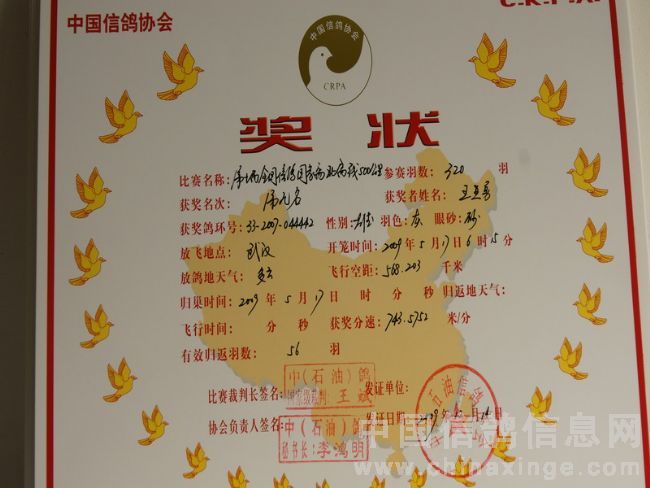 中国信鸽协会
C.R.P.A.
中国信鸽协会
CRPA
奖 状
比赛名称： 500公里 参赛羽数： 320 羽
获奖名次： 第九名 获奖者姓名：
获奖鸽环号： 33-2007-044442 性别： 雄 羽色： 灰 眼砂： 砂
放飞地点： 武汉 开笼时间： 2009 年 5 月 17 日 6 时 15 分
放鸽地天气： 多云 飞行空距： 568.203 千米
归巢时间： 2009 年 5 月 17 日 时 分 秒 归返地天气：
飞行时间： 分 秒 获奖分速： 743.5752 米/分
有效归返羽数： 56 羽
中（石油）鸽
比赛裁判长签名： 国家级裁判：王斌 发证单位：
协会负责人签名： 中（石油）鸽 发证日期： 2009年
秘书长：李鸿明
石油信鸽
中国信鸽信息网
www.chinaxinge.com